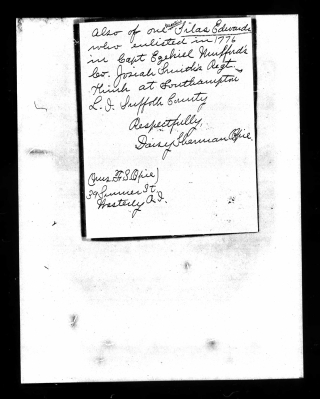 Also of one Silas Edwards
who enlisted in 1776
in Capt Ezekiel Mulford's
Co. Josiah Smith's Regt.
Think at Southampton
L.I. Suffolk County
Respectfully,
Daisy Sherman Spicer
(Mrs. H S Spicer)
39 Sumner St
Westerly R.I.